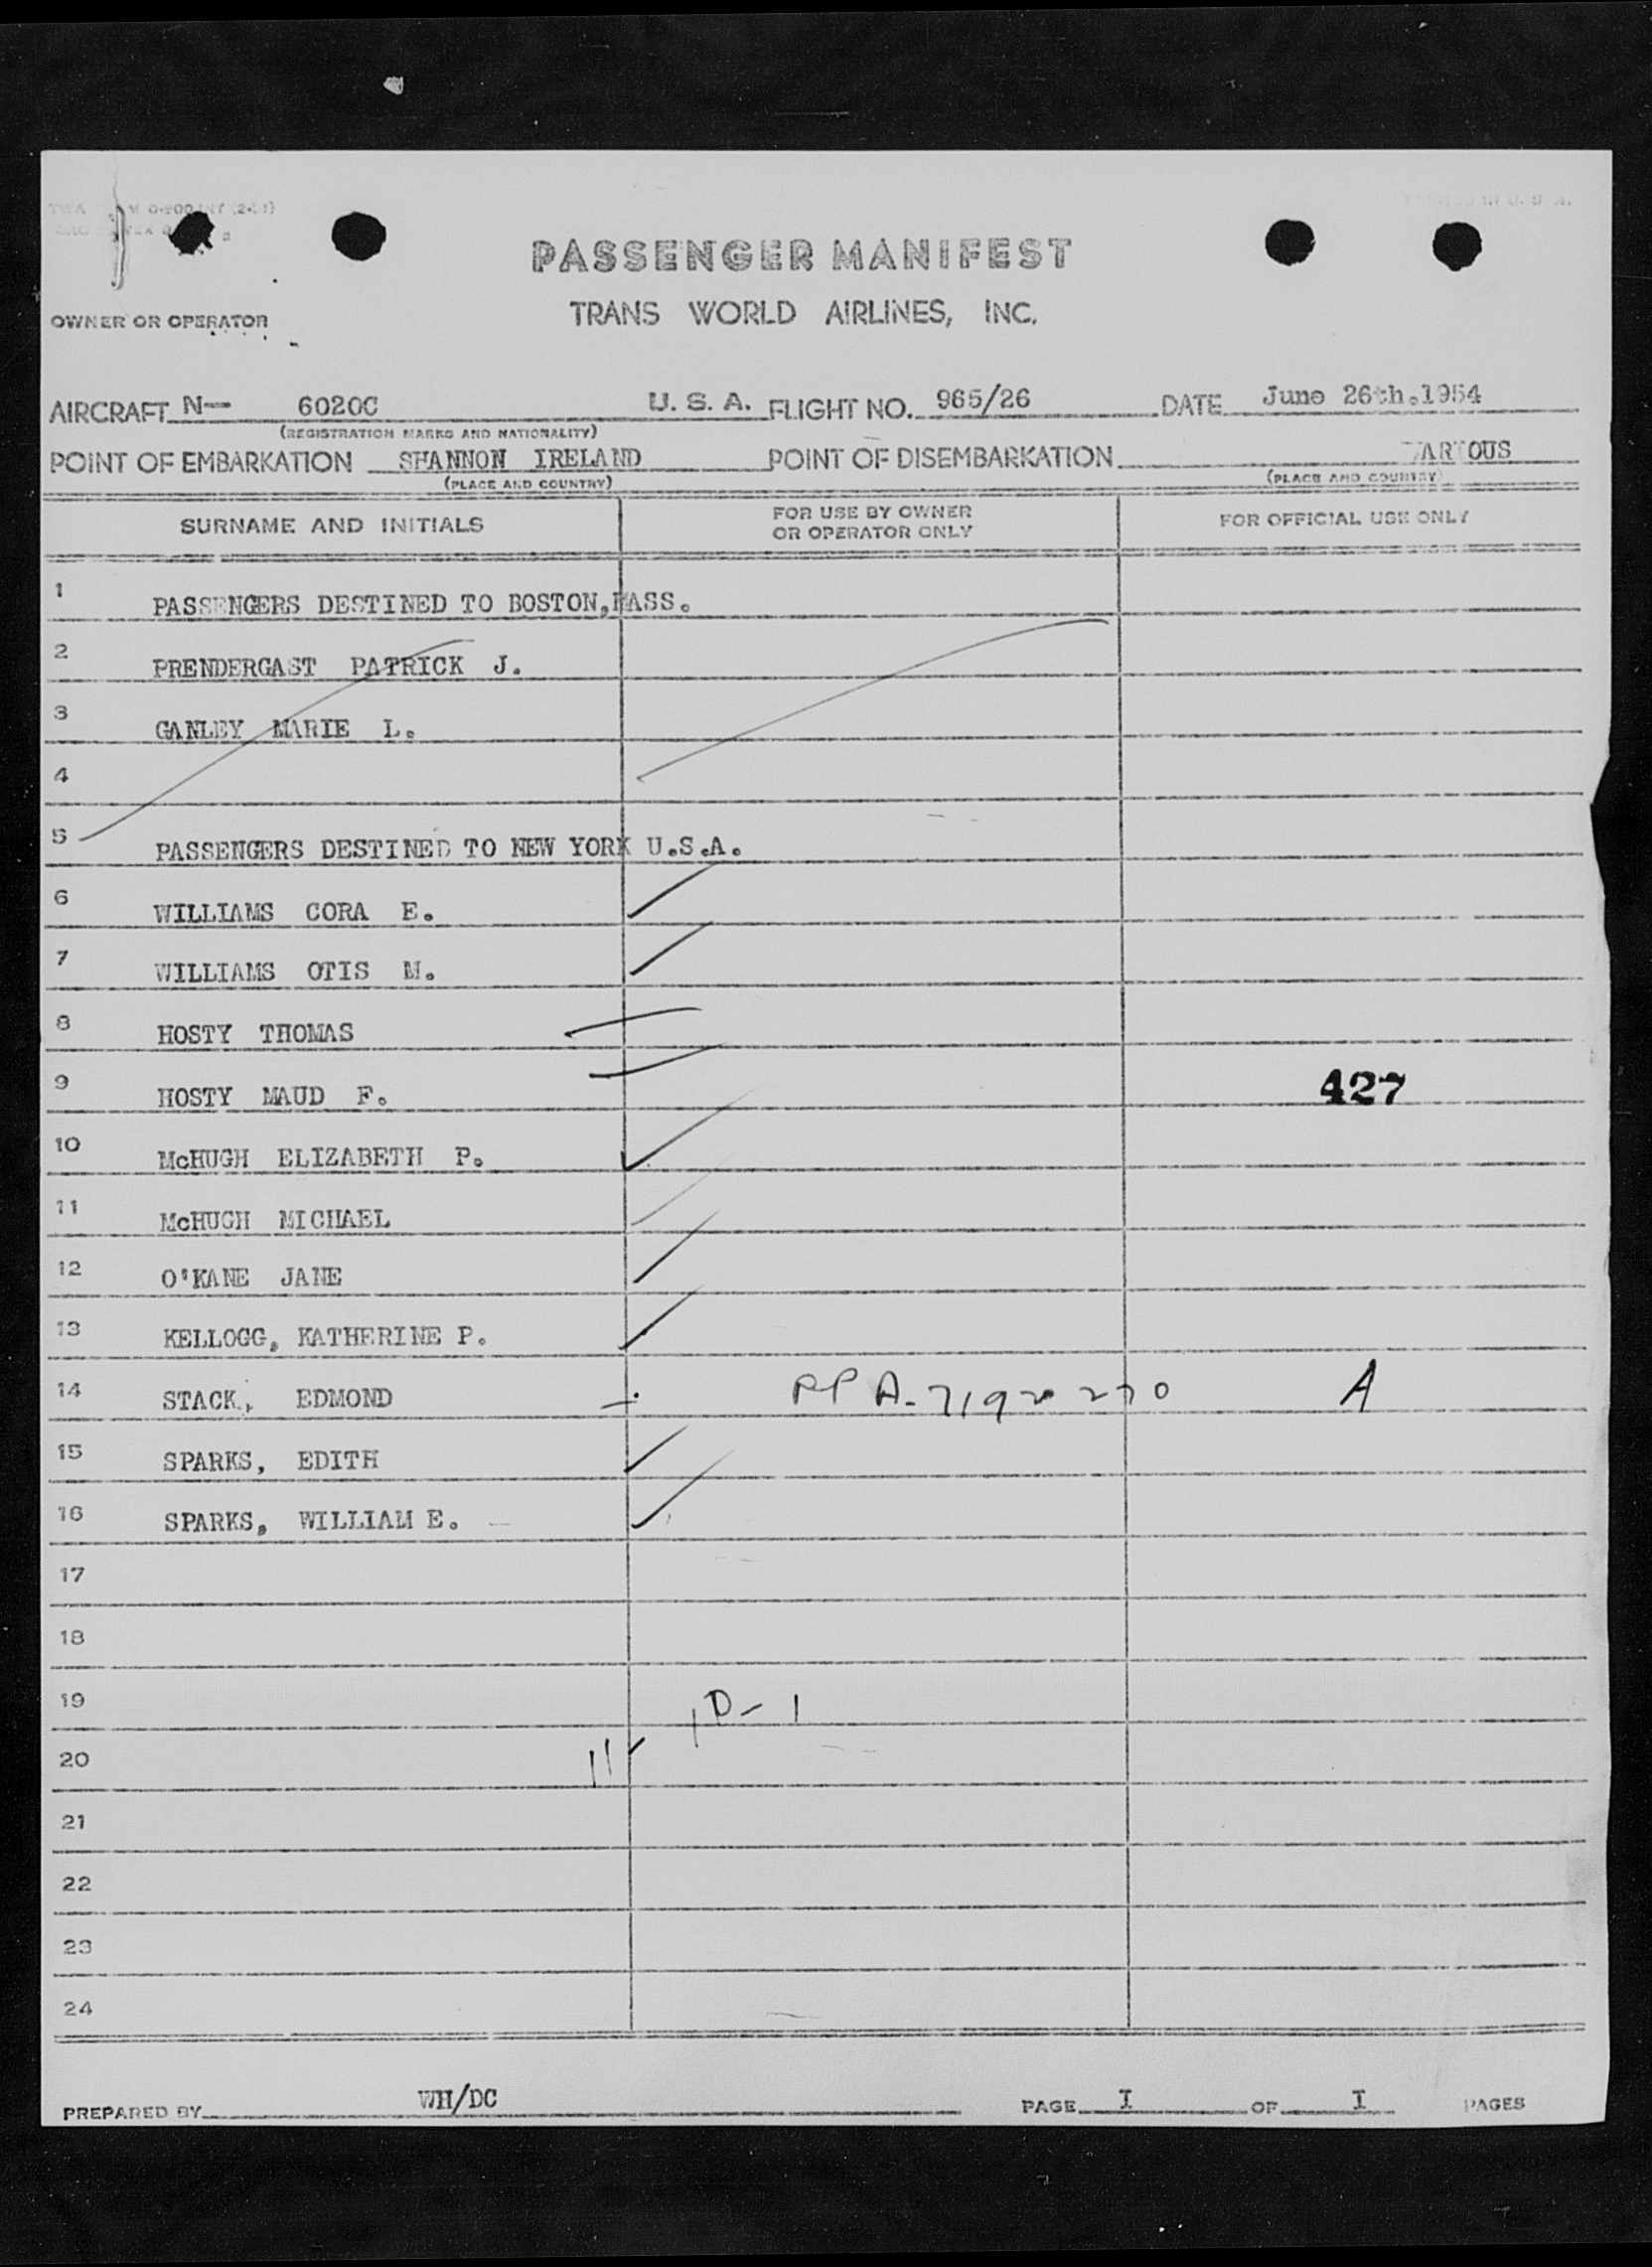 PASSENGER MANIFEST
TRANS WORLD AIRLINES, INC.
OWNER OR OPERATOR
AIRCRAFT N— 6020C U. S. A. FLIGHT NO. 965/26 DATE June 26th.1954
(REGISTRATION MARKS AND NATIONALITY)
POINT OF EMBARKATION SHANNON IRELAND POINT OF DISEMBARKATION VARIOUS
(PLACE AND COUNTRY) (PLACE AND COUNTRY)
SURNAME AND INITIALS FOR USE BY OWNER OR OPERATOR ONLY FOR OFFICIAL USE ONLY
1 PASSENGERS DESTINED TO BOSTON,MASS.
2 PRENDERGAST PATRICK J.
3 GANLEY MARIE L.
4
5 PASSENGERS DESTINED TO NEW YORK U.S.A.
6 WILLIAMS CORA E.
7 WILLIAMS OTIS M.
8 HOSTY THOMAS
9 HOSTY MAUD F. 427
10 McHUGH ELIZABETH P.
11 McHUGH MICHAEL
12 O'KANE JANE
13 KELLOGG, KATHERINE P.
14 STACK, EDMOND PP A-7192270 A
15 SPARKS, EDITH
16 SPARKS, WILLIAM E.
17
18
19 1D-1
20 11
21
22
23
24
PREPARED BY WH/DC PAGE I OF I PAGES